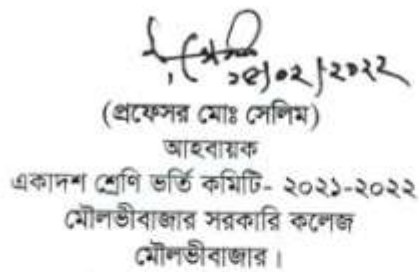 ১৫/০২/২০২২
(প্রফেসর মোঃ সেলিম)
আহবায়ক
একাদশ শ্রেণি ভর্তি কমিটি- ২০২১-২০২২
মৌলভীবাজার সরকারি কলেজ
মৌলভীবাজার।